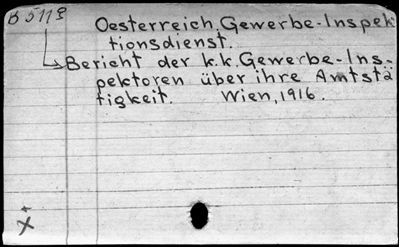 B 511
Oesterreich. Gewerbe-Inspek
tionsdienst.
Bericht der k.k. Gewerbe-Ins-
pektoren über ihre Amtstä
tigkeit. Wien, 1916.